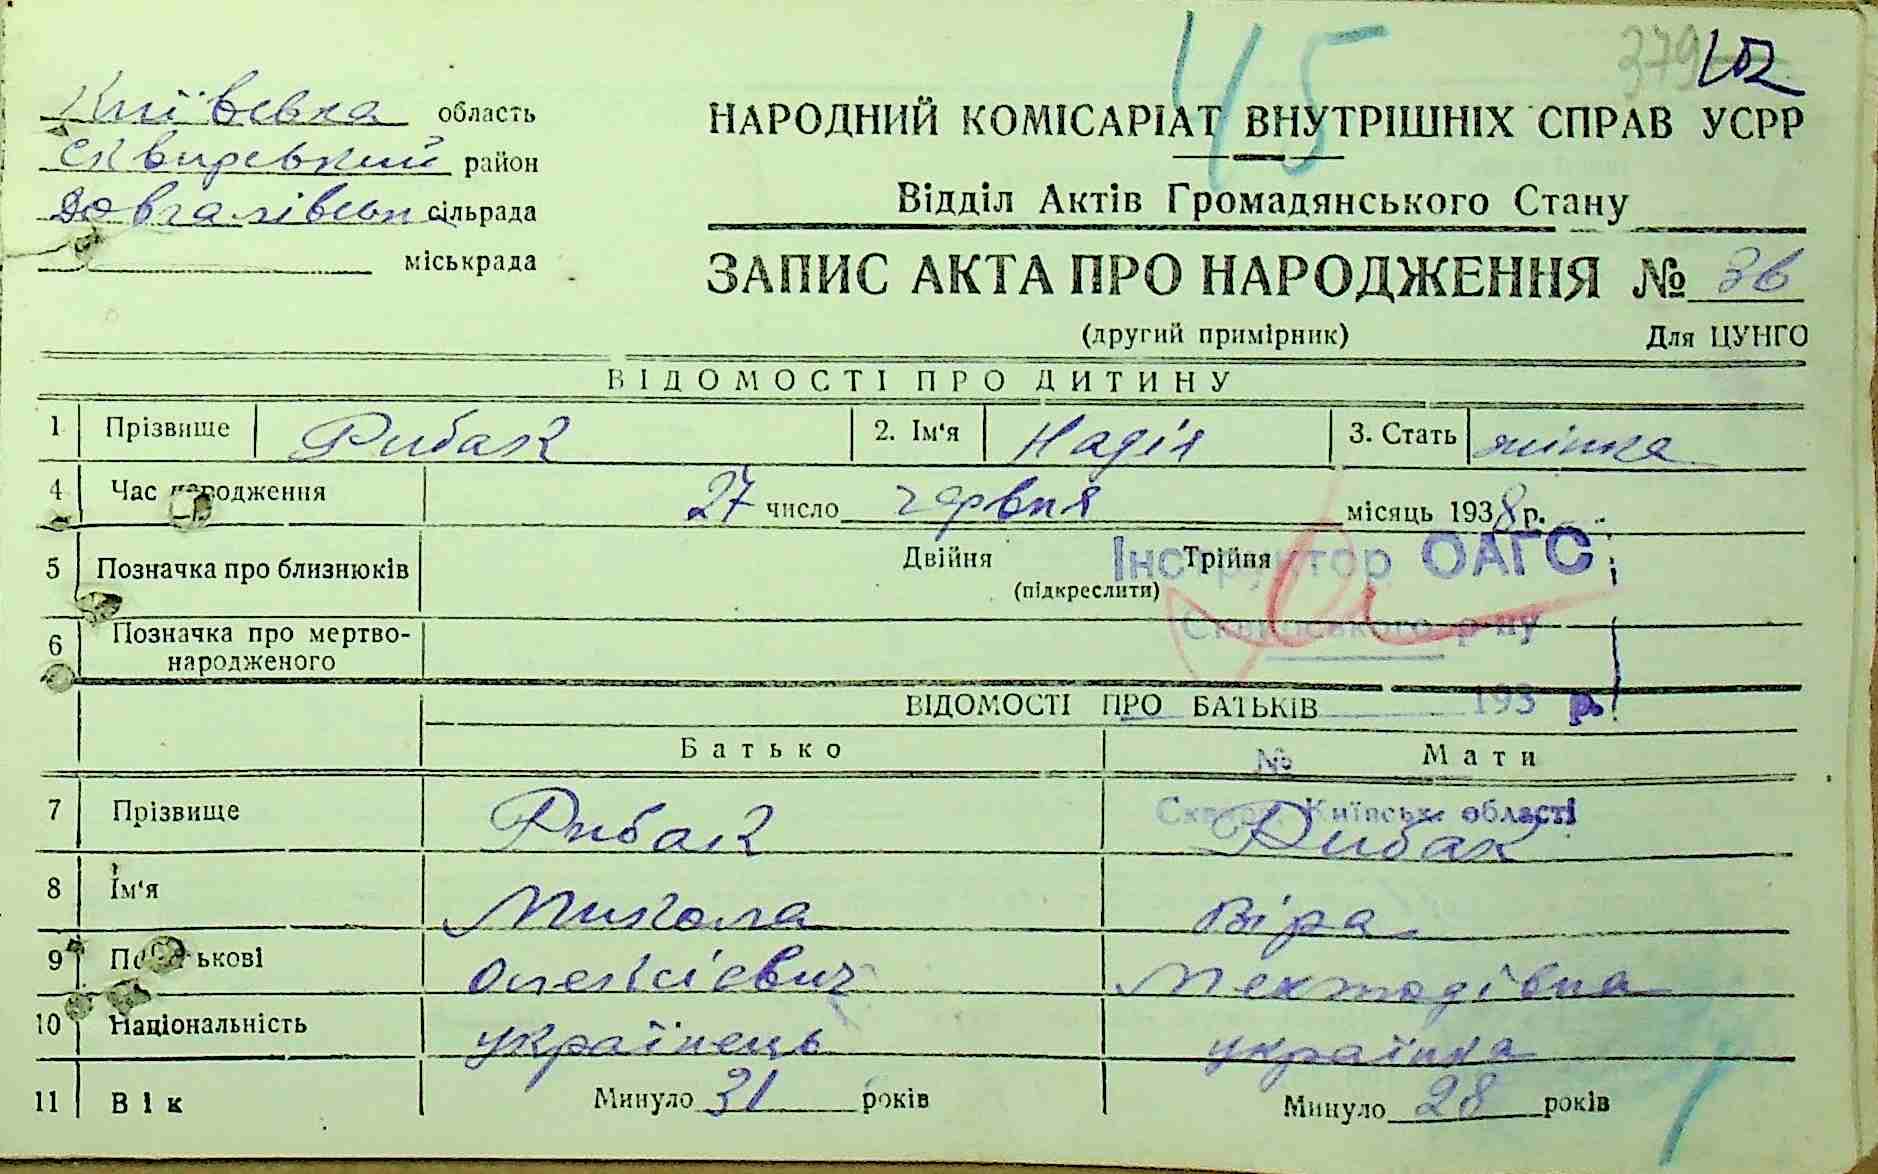 45
379 102
Київська область
Сквирський район
Довгалівськ сільрада
міськрада
НАРОДНИЙ КОМІСАРІАТ ВНУТРІШНІХ СПРАВ УСРР
Відділ Актів Громадянського Стану
ЗАПИС АКТА ПРО НАРОДЖЕННЯ № 36
(другий примірник) Для ЦУНГО
ВІДОМОСТІ ПРО ДИТИНУ
1 Прізвище Рибак 2. Ім'я Надія 3. Стать жінка
4 Час народження 27 число червня місяць 1938 р.
5 Позначка про близнюків Двійня Трійня
(підкреслити)
Інструктор ОАГС
Сквирського р-ну
6 Позначка про мертво-
народженого
193 р.
ВІДОМОСТІ ПРО БАТЬКІВ
Батько Мати
№
Сквира, Київськ. області
7 Прізвище Рибак Рибак
8 Ім'я Микола Віра
9 По батькові Олексієвич Мехтодівна
10 Національність українець українка
11 Вік Минуло 31 років Минуло 28 років